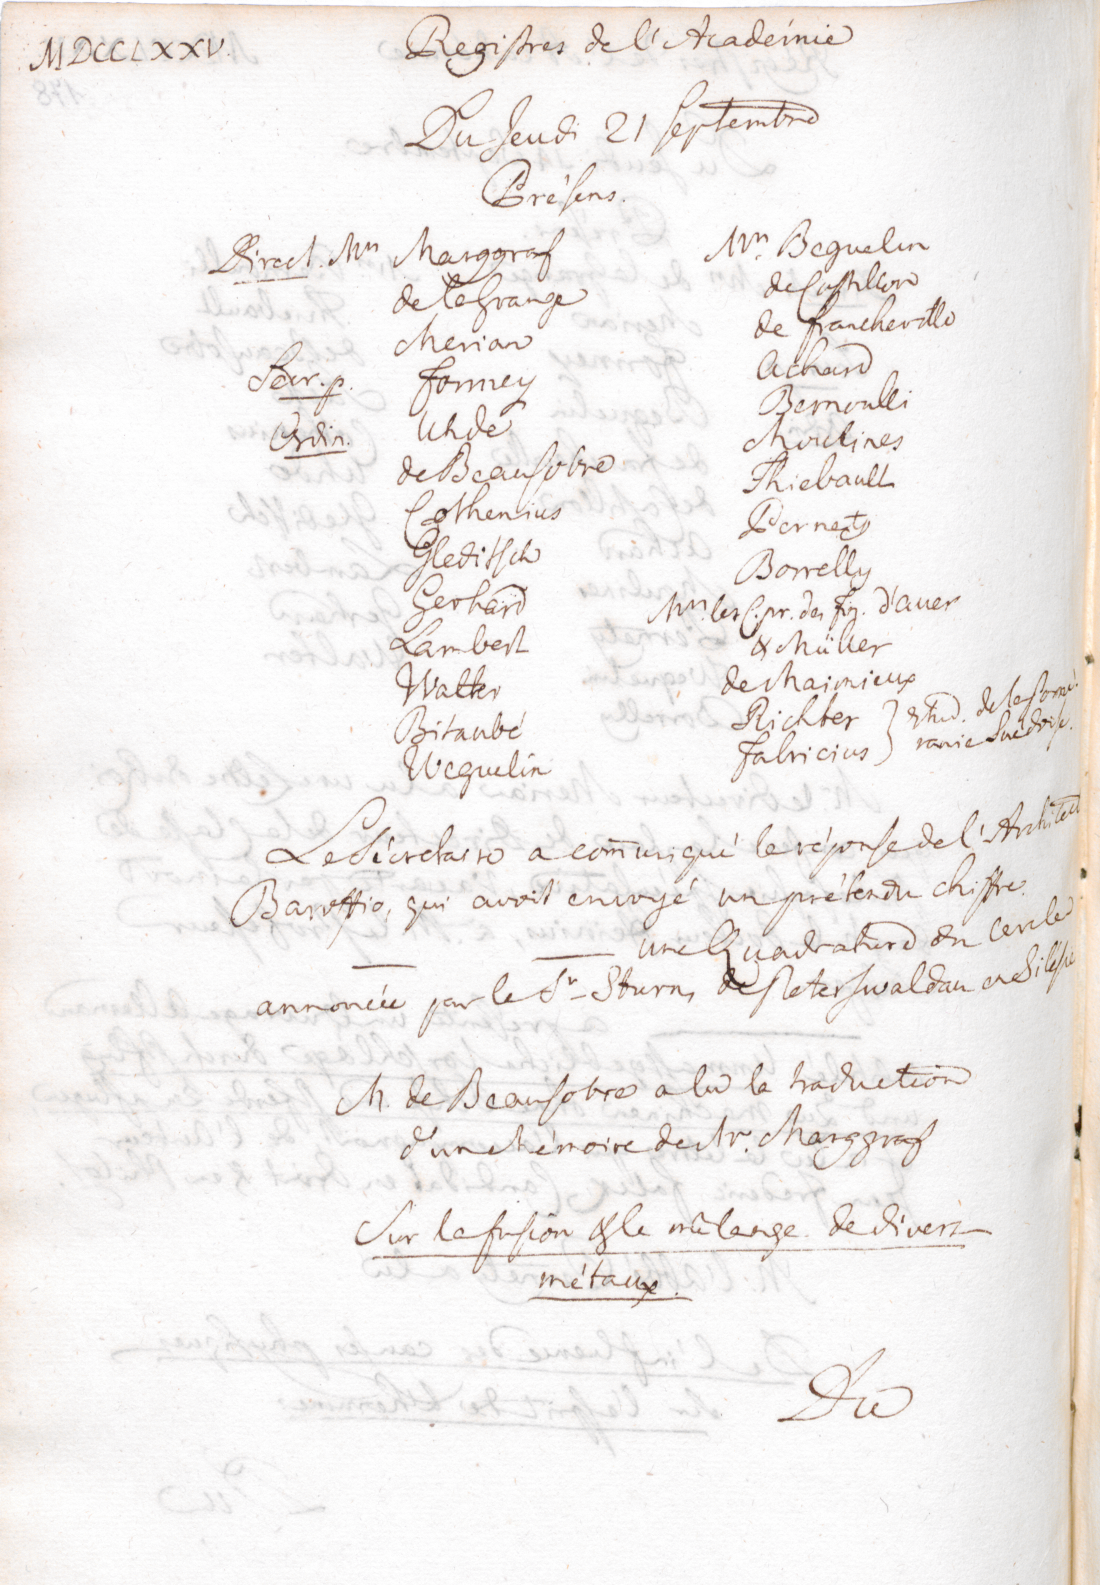 MDCCLXXV.
Registres de l'Académie
Du Jeudi 21 Septembre
Présens.
Direct. Mrs Marggraf
de la Grange
Merian
Secr. p. Formey
Ordin. Uhde
de Beausobre
Cothenius
Gleditsch
Gerhard
Lambert
Walter
Bitaubé
Weguelin
Mrs. Beguelin
de Castillon
de Francheville
Achard
Bernoulli
Moulines
Thiebault
Pernety
Borrelly
Mrs. les C. pr. des fin. d'Auer
& Müller
de Maimieux
Richter } Etud. de la Pomé-
Fabricius } ranie Suédoise.
Le Sécretaire a com̄uniqué la réponse de l'Architect
Baroffio, qui avoit envoyé un prétendu chiffre.
une Quadrature du Cercle
annoncée par le Sr Sturm, de Peterswaldau en Silesie
M. de Beausobre a lu la traduction
d'un Mémoire de Mr. Marggraf
Sur la fusion & le mêlange de divers
métaux.
Du